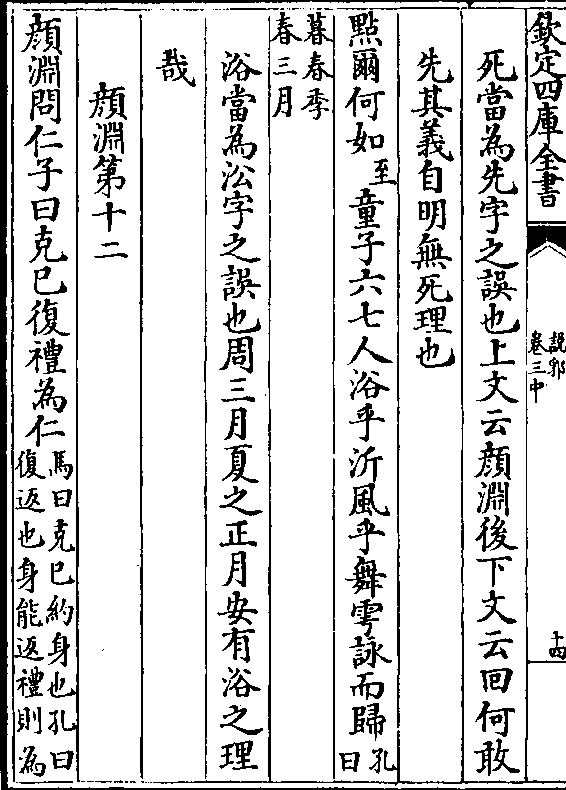 欽定四庫全書
說郛
卷三中
十四
死當為先字之誤也上文云顔淵後下文云回何敢
先其義自明無死理也
點爾何如至童子六七人浴乎沂風乎舞雩詠而歸孔
曰
暮春季
春三月
浴當為㳂字之誤也周三月夏之正月安有浴之理
哉
顔淵第十二
顔淵問仁子曰克己復禮為仁馬曰克己約身也孔曰
復返也身能返禮則為